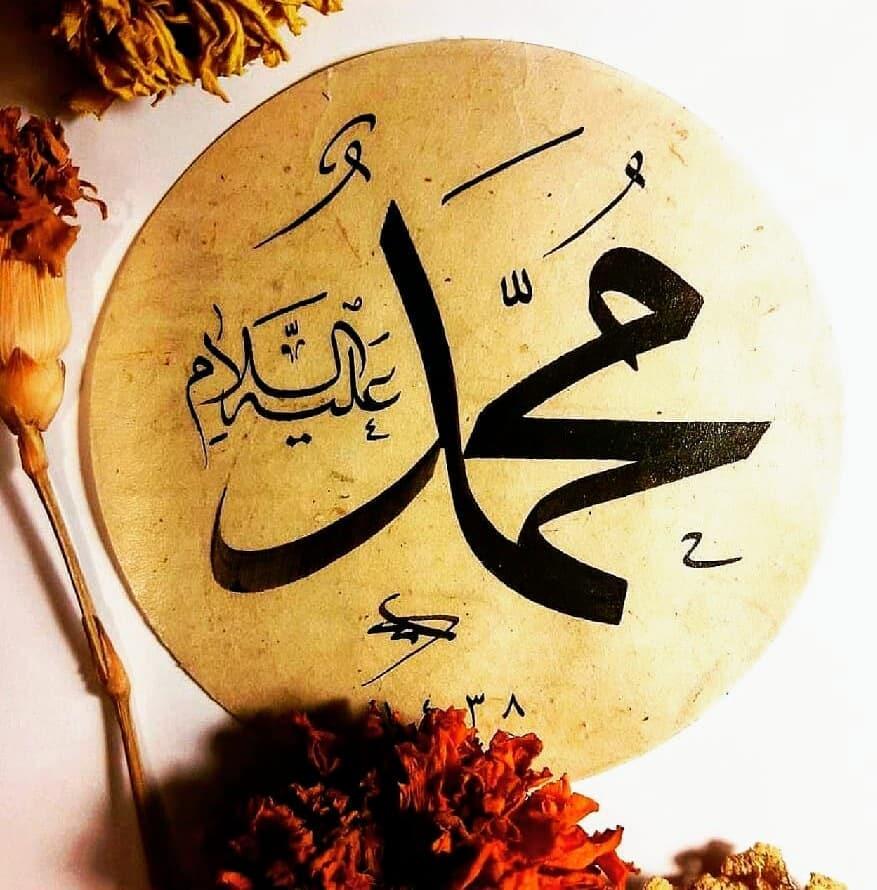 مُحَمَّدٌ
عَلَيْهِ السَّلَامِ
١٤٣٨